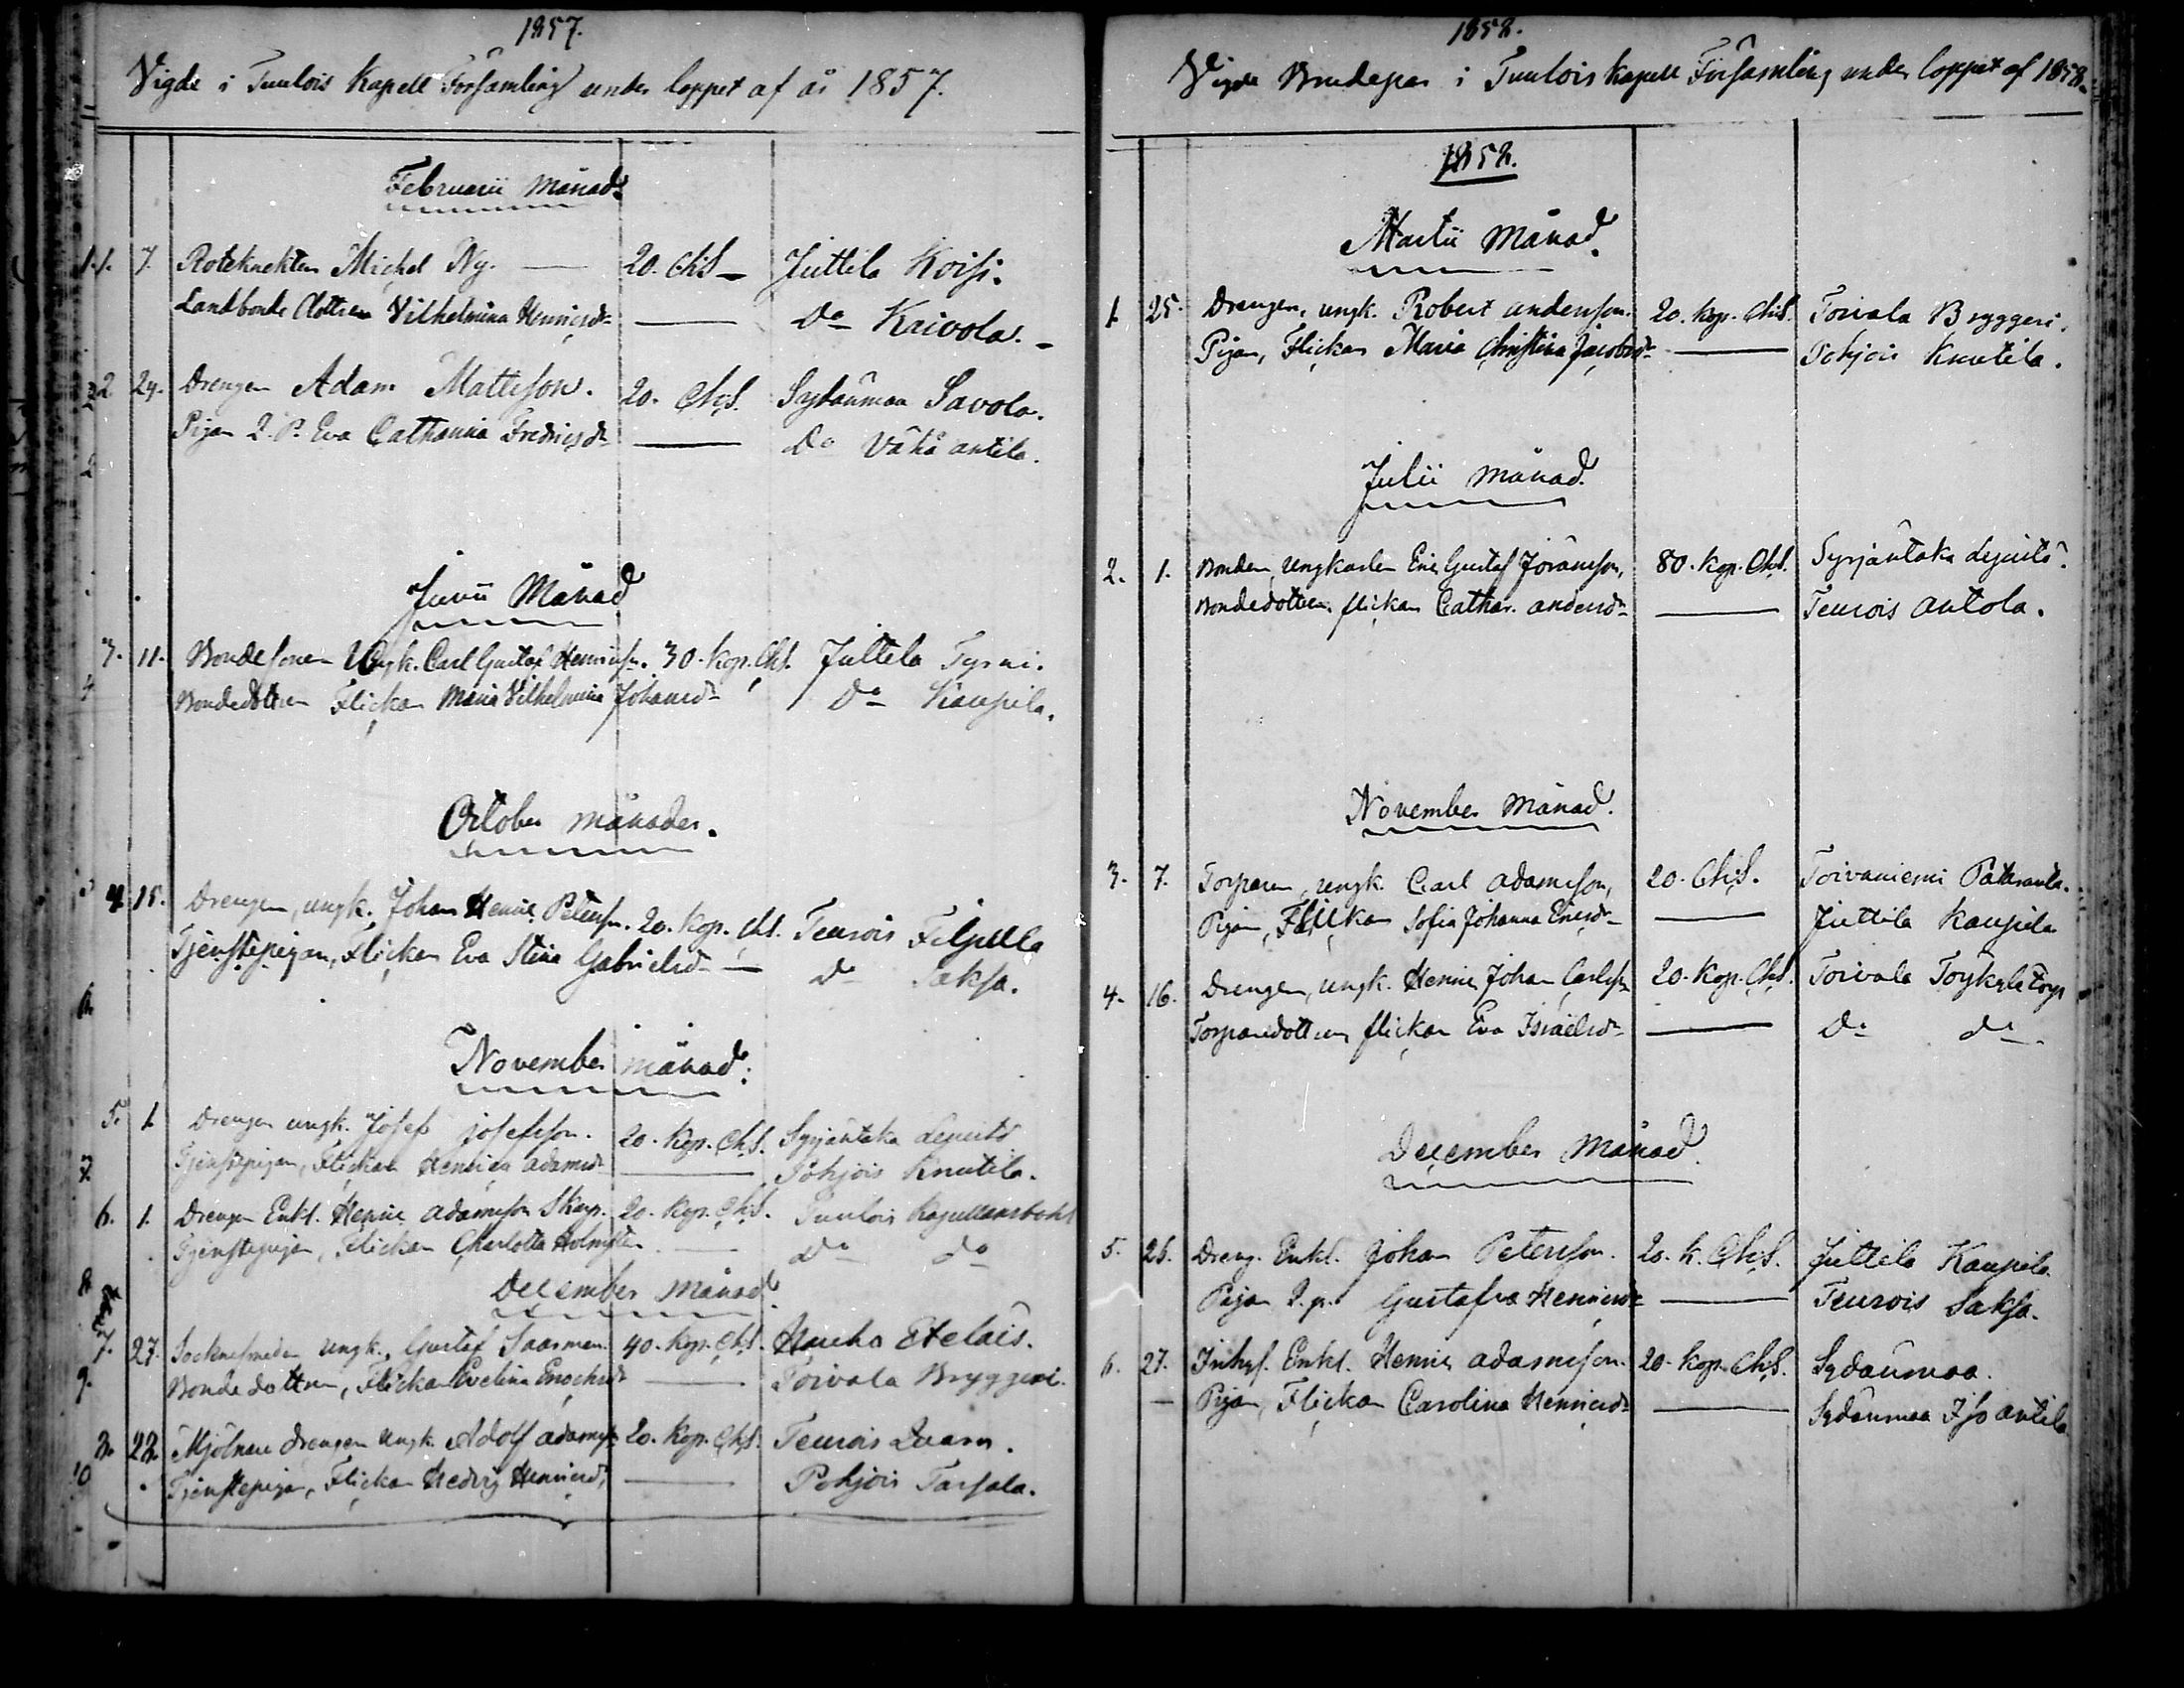 1857.
Vigde i Tuulois Kapell Församling under loppet af år 1857.
Februarii Månad.
1. 7. Roteknekten Michel Ny. — 20. Ch.S. — Juttila Koisi.
Landbonde dottren Vilhelmina Henricsdr — Do Kaivola. -
2 29. Drengen Adam Mattsson. 20. Ch.S. Sydänmaa Savola.
Pigan 2. P. Eva Catharina Fredricsdr — Do Vähä antila.
Junii Månad
3. 11. Bondesonen Ungk. Carl Gustaf Henricss. 30. Kop. Ch.S. Juttila Tyrni.
Bondedottren Flickan Maria Vilhelmina Johansdr Do Kaupila.
October månader.
4. 15. Drengen, ungk. Johan Henric Peterss. 20. Kop. Ch.S. Teurois Filpulla
Tjenstepigan, Flickan Eva Stina Gabrielsdr — Do Saksa.
November månad.
5. 1. Drengen ungk. Josef Josefsson. 20. Kop. Ch.S. Syrjäntaka Lejuitö
Tjenstepigan, Flickan Henrica Adamsdr — Pohjois Knutila.
6. 1. Drengen Enkl. Henric Adamsson Skarp. 20. Kop. Ch.S. Tuulois Kapellansbohl
Tjenstepigan, Flickan Charlotta Holmsten — Do do
December Månad.
7. 27. Socknesmeden ungk. Gustaf Saarman. 40. Kop. Ch.S. Hauho Eteläis.
Bondedottren, Flickan Evelina Enochsdr — Toivala Bryggeri.
8. 28. Mjölnare drengen ungk. Adolf Adamss. 20. Kop. Ch.S. Teurois Qvarn.
Tjenstepigan, Flickan Hedvig Henricsdr — Pohjois Tarsala.
1858.
Vigde Brudepar i Tuulois kapell Församling under loppet af 1858.
1858.
Martii Månad.
1. 25. Drengen, ungk. Robert andersson. 20. Kop. Ch.S. Toivala Bryggeri.
Pigan, Flickan Maria Christina Jacobsdr — Pohjois Knutila.
Julii månad.
2. 1. Bonden, Ungkarlen Eric Gustaf Göransson, 80. Kop. Ch.S. Syrjäntaka Lejuitö.
Bondedottren, flickan Cathar. andersdr — Teurois antola.
November månad.
3. 7. Torparen, ungk. Carl adamsson, 20. Ch.S. Toivaniemi Pataranta.
Pigan, Flickan Sofia Johanna Ericsdr — Juttila Kaupila
4. 16. Drengen, ungk. Henric Johan Carlss. 20. Kop. Ch.S. Toivala Torp
Torparedottren flickan Eva Israelsdr — Do do
December Månad.
5. 26. Dreng. Enkl. Johan Petersson. 20. k. Ch.S. Juttila Kaupila
Pigan 2. p. Gustafva Henricsdr — Teurois Saksa.
6. 27. Inhys. Enkl. Henric adamsson. 20. Kop. Ch.S. Sydänmaa.
Pigan, Flickan Carolina Henricsdr — Sydänmaa Iso antila